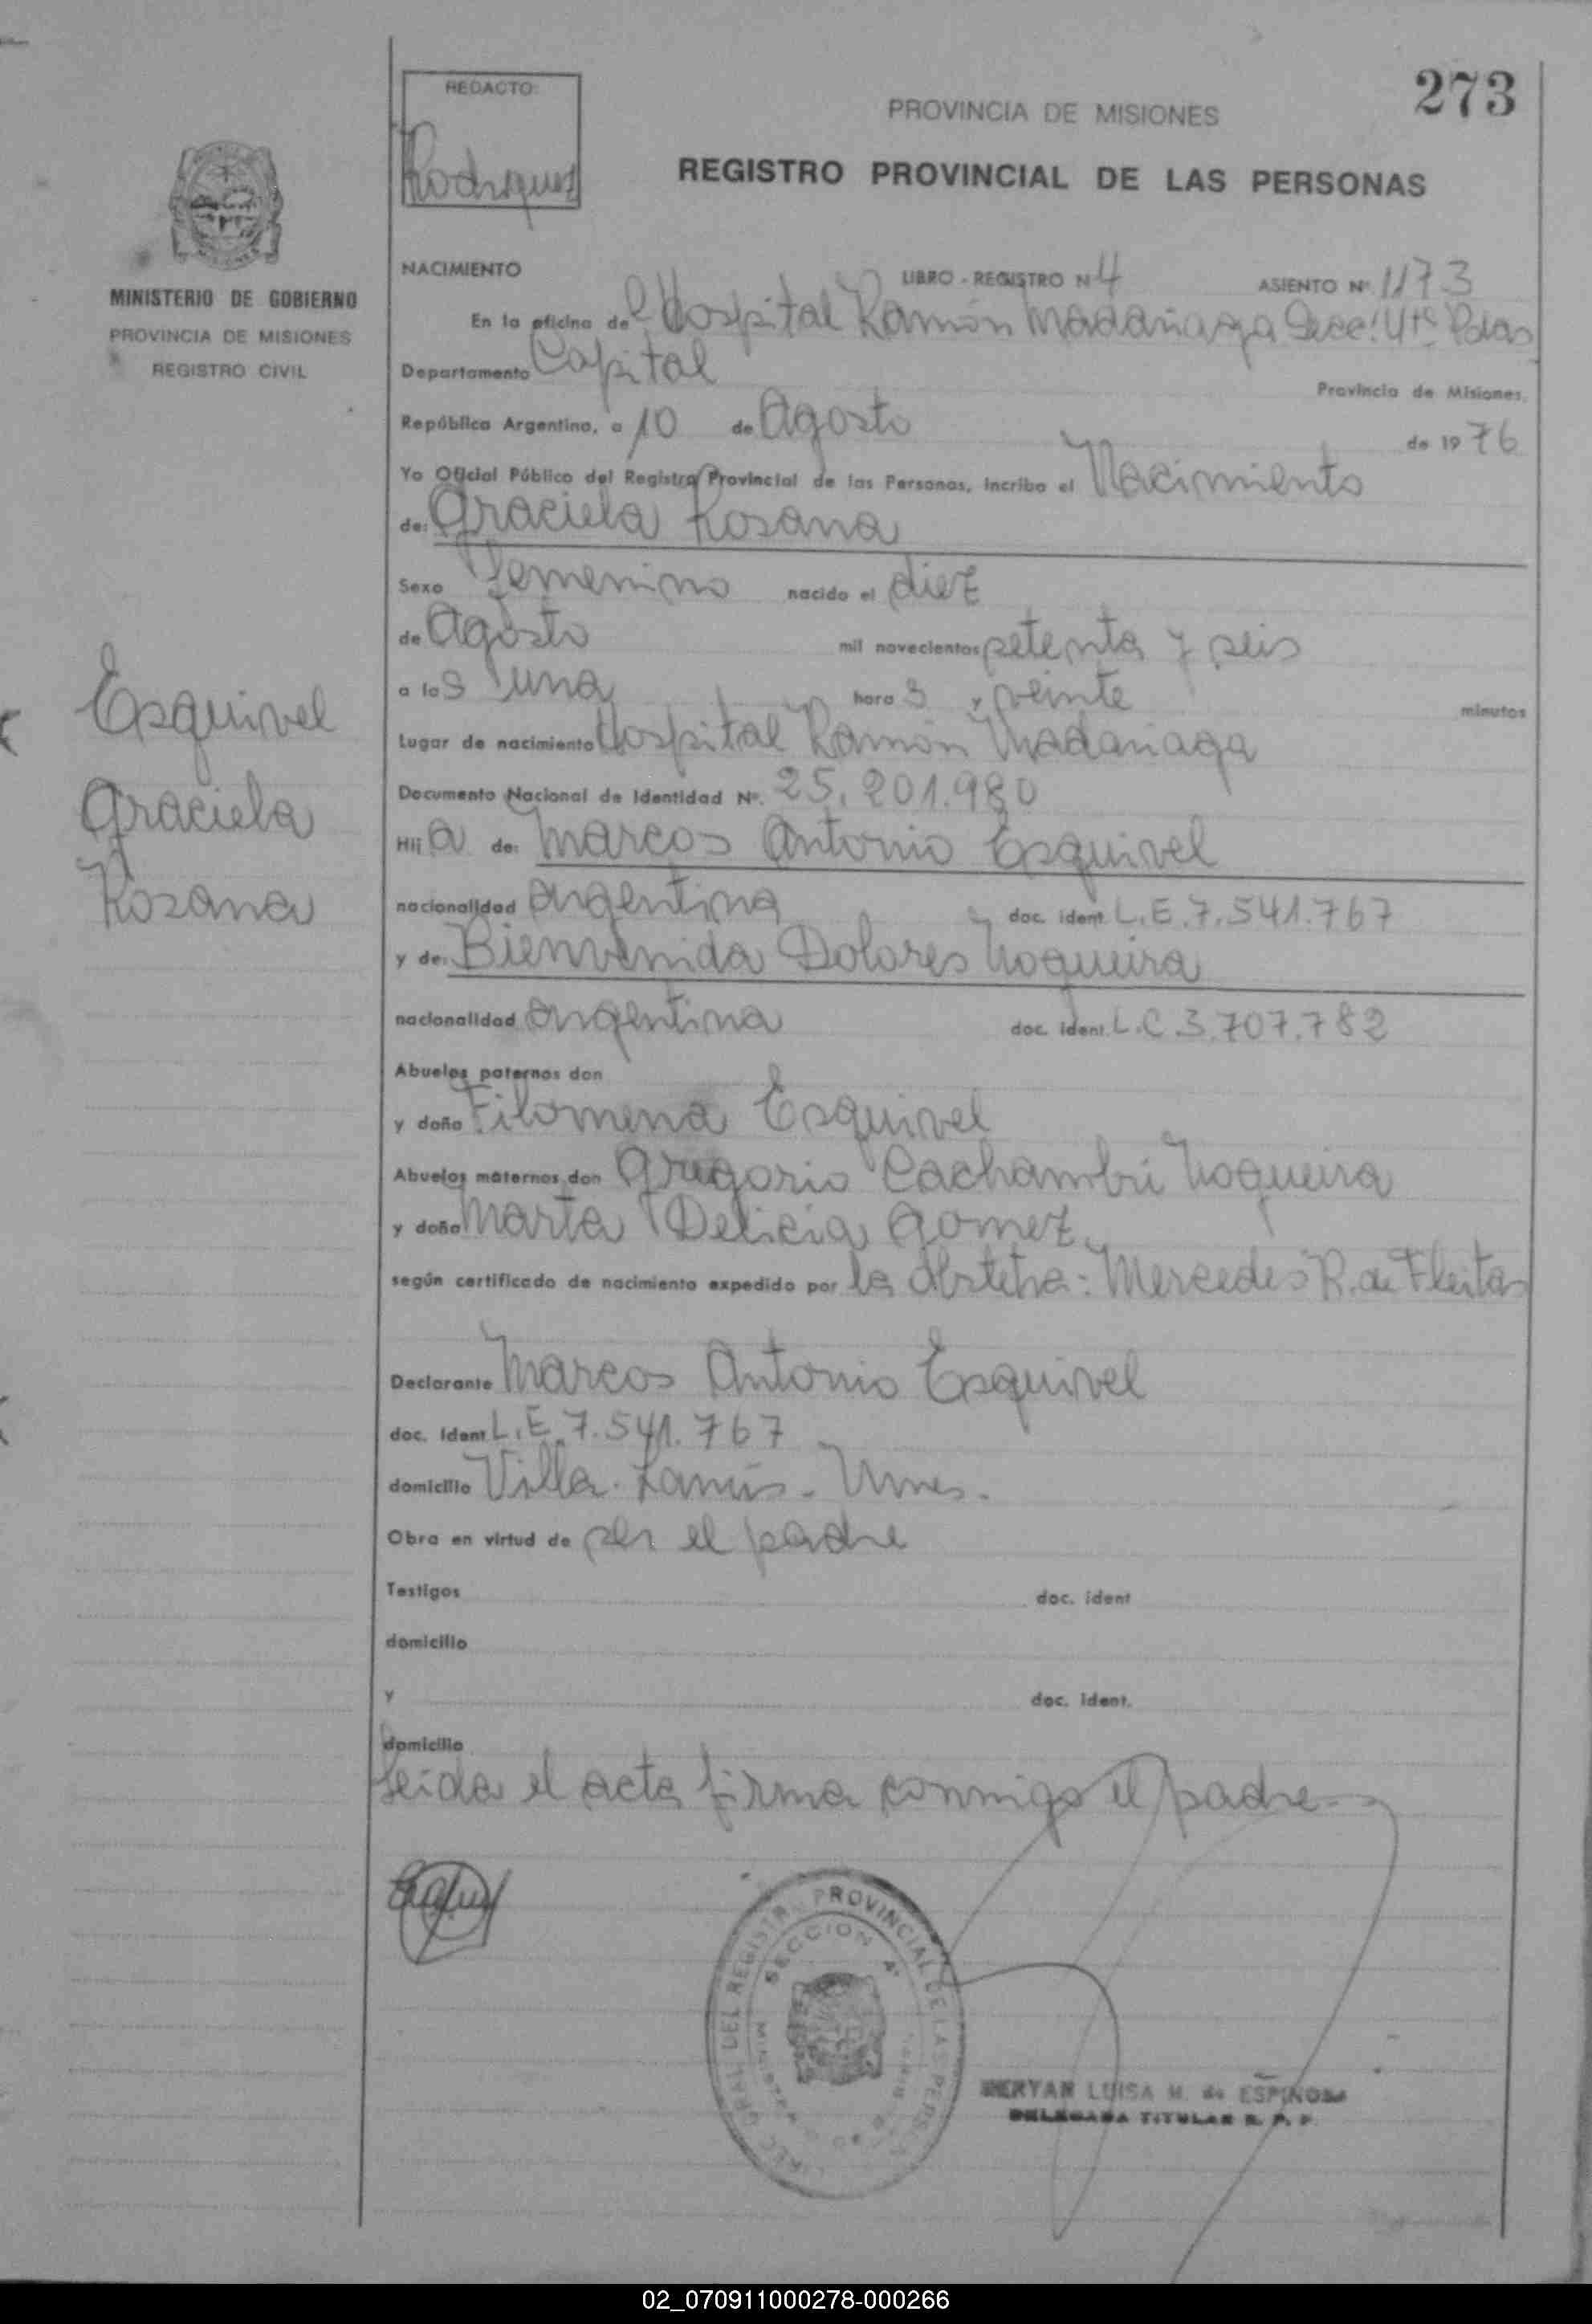 273
REDACTO:
Rodriguez
PROVINCIA DE MISIONES
REGISTRO PROVINCIAL DE LAS PERSONAS
MINISTERIO DE GOBIERNO
PROVINCIA DE MISIONES
REGISTRO CIVIL
Esquivel
Graciela
Rosana
NACIMIENTO LIBRO - REGISTRO Nº 4 ASIENTO Nº 1173
En la oficina del Hospital Ramón Madariaga Secc. 4ta. Pdas
Departamento Capital Provincia de Misiones,
República Argentina, a 10 de Agosto de 1976
Yo Oficial Público del Registro Provincial de las Personas, incribo el Nacimiento
de: Graciela Rosana
Sexo femenino nacido el diez
de Agosto mil novecientos setenta y seis
a las una hora s y veinte minutos
Lugar de nacimiento Hospital Ramón Madariaga
Documento Nacional de Identidad Nº. 25.201.980
Hij a de: Marcos Antonio Esquivel
nacionalidad argentina doc. ident. L.E.7.541.767
y de: Bienvenida Dolores Noqueira
nacionalidad argentina doc. ident. L.C.3.707.782
Abuelos paternos don
y doña Filomena Esquivel
Abuelos maternos don Gregorio Cachambú Noqueira
y doña Marta Delicia Gomez
según certificado de nacimiento expedido por la Obstetra: Mercedes R. de Fleitas
Declarante Marcos Antonio Esquivel
doc. ident L.E.7.541.767
domicilio Villa Lanús - Mnes.
Obra en virtud de ser el padre
Testigos doc. ident
domicilio
y doc. ident.
domicilio
Leida el acta firma conmigo el padre
GRAL DEL REGISTRO PROVINCIAL DE LAS PERS
SECCION 4ª
LUISA M. de ESPINOSA
DELEGADA TITULAR R. P. P.
02_070911000278-000266